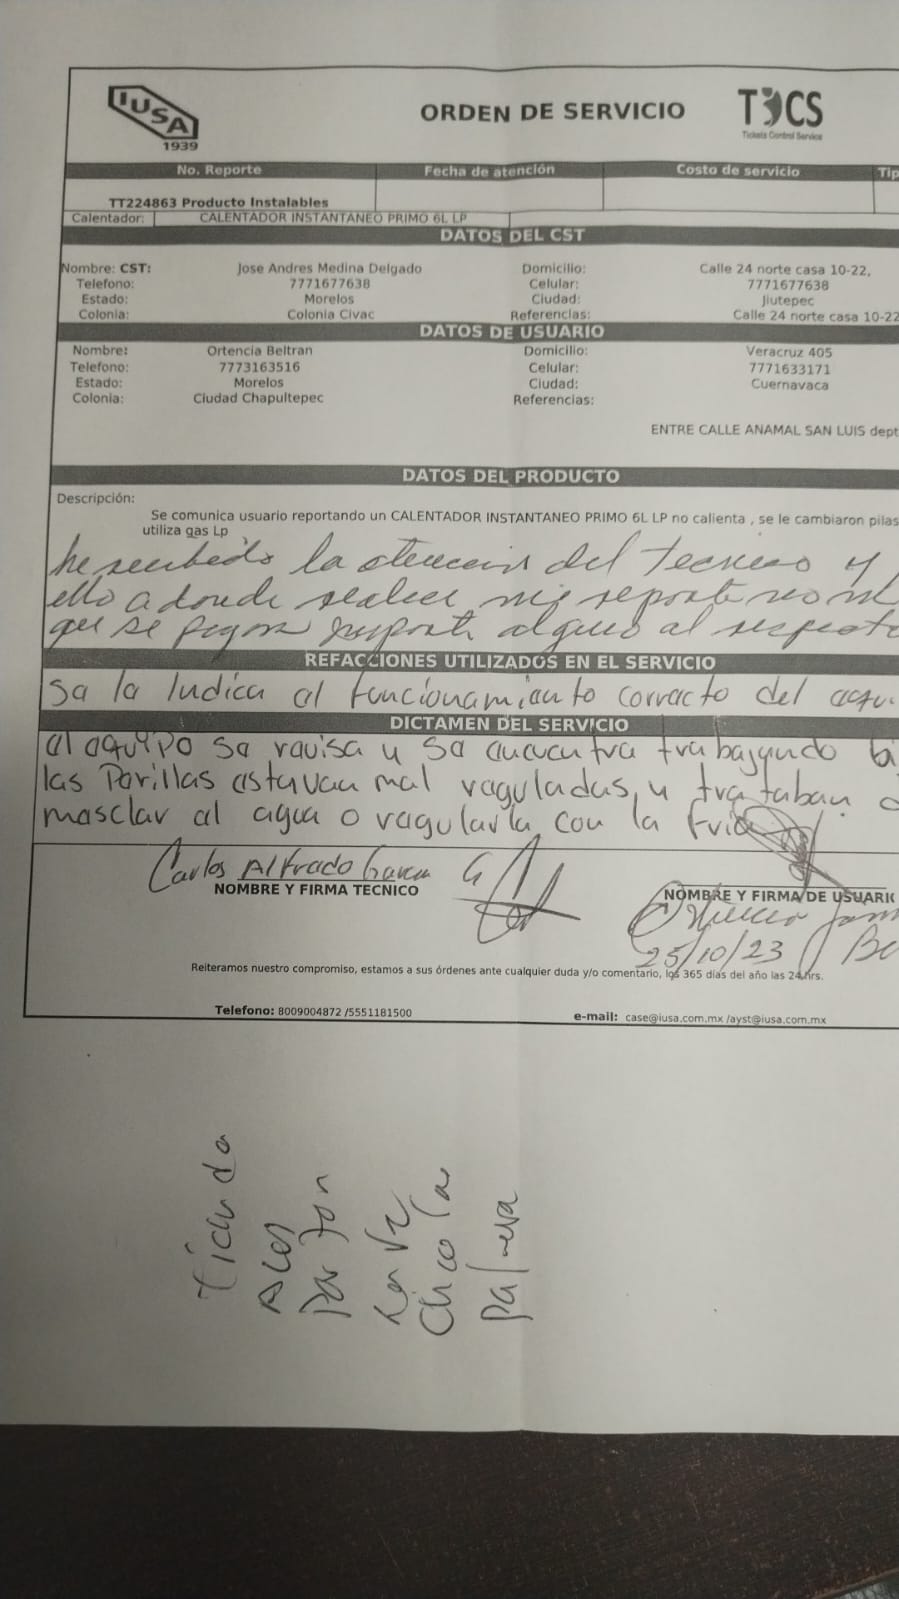 IUSA
1939
ORDEN DE SERVICIO
TICS
Tickets Control Service
No. Reporte Fecha de atención Costo de servicio Tip
TT224863 Producto Instalables
Calentador: CALENTADOR INSTANTANEO PRIMO 6L LP
DATOS DEL CST
Nombre: CST: Jose Andres Medina Delgado Domicilio: Calle 24 norte casa 10-22,
Telefono: 7771677638 Celular: 7771677638
Estado: Morelos Ciudad: Jiutepec
Colonia: Colonia Civac Referencias: Calle 24 norte casa 10-22
DATOS DE USUARIO
Nombre: Ortencia Beltran Domicilio: Veracruz 405
Telefono: 7773163516 Celular: 7771633171
Estado: Morelos Ciudad: Cuernavaca
Colonia: Ciudad Chapultepec Referencias:
ENTRE CALLE ANAMAL SAN LUIS dept
DATOS DEL PRODUCTO
Descripción:
Se comunica usuario reportando un CALENTADOR INSTANTANEO PRIMO 6L LP no calienta , se le cambiaron pilas
utiliza gas Lp
he recibido la atencion del tecnico y
ello a donde realice mi reporte no
que se alguno al respecto
REFACCIONES UTILIZADOS EN EL SERVICIO
Sa la Indica al funcionamiento corracto del
DICTAMEN DEL SERVICIO
al aquipo sa ravisa y sa ancuentra trabajando
las Parillas astavan mal raguladas y trataban
masclar al agua o ragularla con la fria
Carlos Alfrado Garcia G
NOMBRE Y FIRMA TECNICO NOMBRE Y FIRMA DE USUARIO
Ortencia
25/10/23
Reiteramos nuestro compromiso, estamos a sus órdenes ante cualquier duda y/o comentario, los 365 días del año las 24 hrs.
Telefono: 8009004872 /5551181500 e-mail: case@iusa.com.mx /ayst@iusa.com.mx
tienda